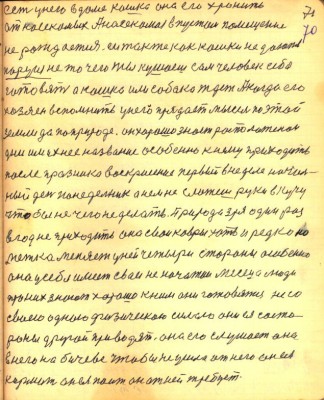 71
70
есть унего вдоме кошка она его хранить
от насекомых Анасекомая впустом помещение
не рождается. ситак же как кошки не давать
порции не то чего мы кушаем сам человек себе
готовять а кошка или собака ждет Акогда его
хозяен вспомнить унего придает мысел поэтой
земли да поприроде. он хорошо знает
дни имхнее название особенно кнему приходить
после празника воскрешения первый внеделе начен
ный ден понеделник анемне сметеш руки вкучу
чтобы не чего неделать. Природа зря один раз
вгод не приходить она свои ковры хоть и редко но
метка меняет уней четыри стороны особенно
она усебя имеет сваи не початаи месеца люди
про них знают хорошо кним они готовятиц не со
своего одного физическаю силою они ея со
роны другой приводят. она его слушает она
внего на бичеве чтобы не ушла от него он ея
кормит он ея поит он от ней требует.